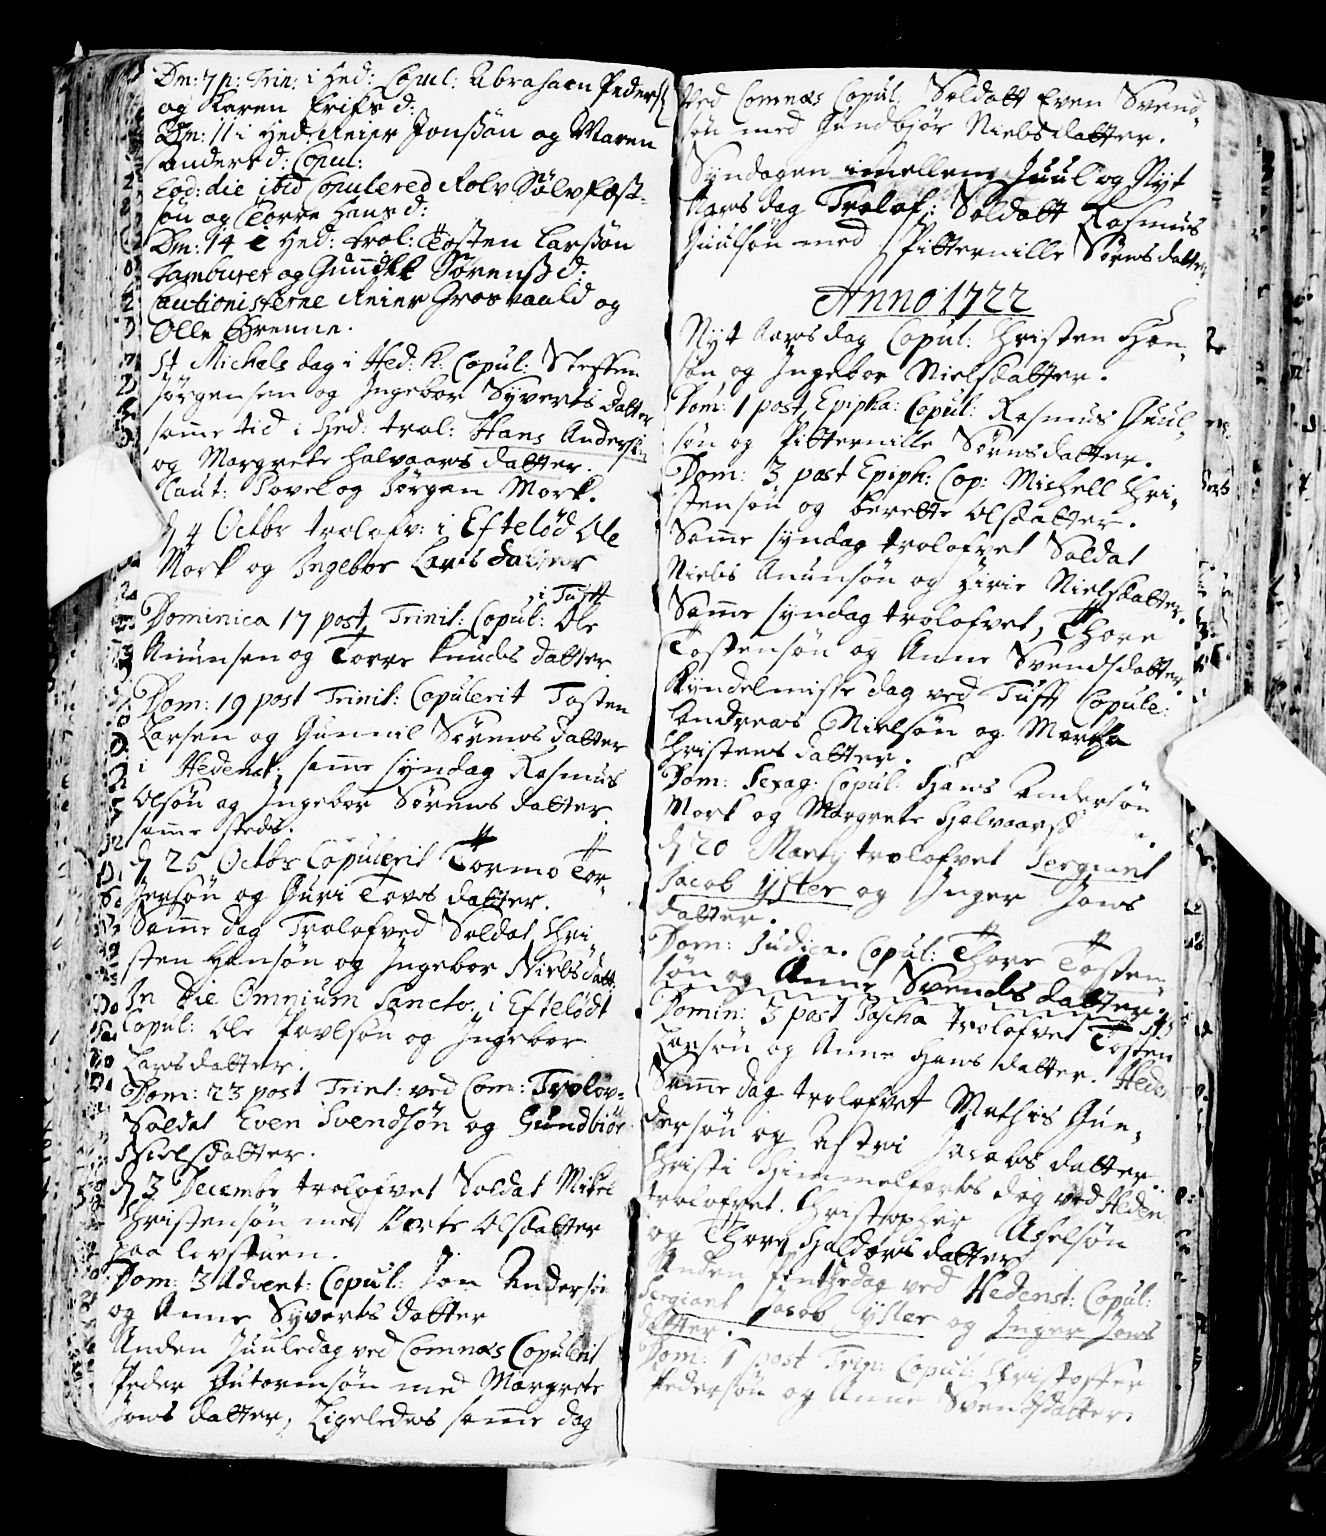 Dn: 7 p: Trin: i Hed: Copul: Abraham Peders:
og Karen Erichsd:
Dn: 11 i Hed: Reier Jonssøn og Maren
Andersd: Copul:
Eod: die ibid Copulered Rolv Sølvfæst-
søn og Torre Hansd:
Dn: 14 Hed: trol: Tosten Larssøn
Tamburer og Gunild Sørenssd:
Cautionisterne Reier Grosvaald og
Olle Grenne.
St Michels dag i Hed: K: Copul: Steffen
Jørgensen og Ingebor Syverts datter
samme tid i Hed: trol: Hans Andersøn
og Margrete Halvaars datter.
Caut: Povel og Jørgen Mork.
d 4 Octbr trolofv: i Eftelød Ole
Mork og Ingebor Lars datter
i Tufft
Dominica 17 post Trinit: Copul: Ole
Anunsen og Torre Knuds datter
Dom: 19 post Trinit: Copulerit Tosten
Larsen og Gunnil Sørens datter
i Hedenst: samme syndag Rasmus
Olsøn og Ingebor Sørens datter
samme steds.
d 25 Octbr Copulerit Tormo Tor-
gersøn og Guri Tovs datter.
Samme dag Trolofved Soldat Chri
sten Hansøn og Ingebor Nielsdatt:
In Die Omnium Sancto: i Eftelødt
Copul: Ole Povlsøn og Ingebor
Larsdatter.
Dom: 23 post Trint: ved Com: Troløv-
Soldat Even Svendsøn og Gundbiør
Nielsdatter.
d 3 Decembr trolofvet Soldat Mikel
Christensøn med Berte Olsdatter
paa Lovstuen.
Dom: 3 Advent: Copul: Jon Andersøn
og Anne Syverts datter
Anden Juuledag ved Comnæs Copulerit
Peder Gutormsøn med Margrete
Jons datter, Ligeledes samme dag
Ved Comnæs Copul: Soldatt Even Svend-
søn med Gundbjør Nielsdatter.
Syndagen imellem Juul og Nyt
Aars dag Trolof: Soldatt Rasmus
Juulsøn med Pitternille Sørensdatter
Anno 1722
Nyt Aarsdag Copul: Christen Han-
søn og Ingebor Nielsdatter.
Dom: 1 post Epipha: Copul: Rasmus Juul-
søn og Pitternille Sørnsdatter.
Dom: 3 post Epiph: Cop: Michell Chri-
stensøn og Berette Olsdatter.
Samme syndag trolofvet Soldat
Niels Anunsøn og Zirie Nielsdatter.
Samme syndag trolofvet, Thore
Tostensøn og Anne Svendsdatter.
Kyndelmisse dag ved Tufft Copule:
Andreas Nielsøn og Martha
Christens datter.
Dom: Sexag: Copul: Hans Andersøn
Mork og Margrete Halvaarsd
d 20 Martij trolofvet Sergiant
Jacob Yster og Inger Jons
datter.
Dom: Judica. Copul: Thore Tosten-
søn og Anne Svends datter.
Domin: 3 post Pascha trolofvet Tosten
Larsøn og Anne Hans datter. Heden
Samme dag trolofvet Mathis Gun-
dersøn og Astri Jacobs datter.
Christi Himmelfarts dag ved Heden
trolofvet. Christopher Axelsøn
og Thore Haldors datter
Anden Pintzedag ved Hedenst: Copul:
Sergiant Jacob Cyster og Inger Jons
datter.
Dom: 1 post Trin: Copul: Christoffer
Pedersøn og Anne Svendsdatter.